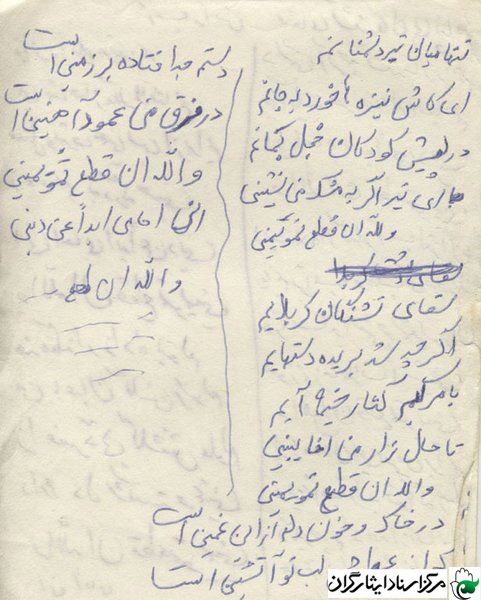 تنها میان تیر دشمنانم
ای کاش نیزه ها خورد به جانم
در پیش کودکان خجل بمانم
ای تیر اگر به مشک من نشینی
والله ان قطعتموا یمینی
سقای تشنگان کربلایم
اگر چه شد بریده دستهایم
با سر کنار خیمه آیم
تا حال زار من اخا ببینی
والله ان قطعتموا یمینی
در خاک و خون دلم از آن غمین است
لب تو آتشین است
دستم جدا فتاده بر زمین است
در فرق من عمود آهنین است
والله ان قطعتموا یمینی
انی احامی ابدا عن دینی
والله ان قطع
مرکز اسناد ایثارگران